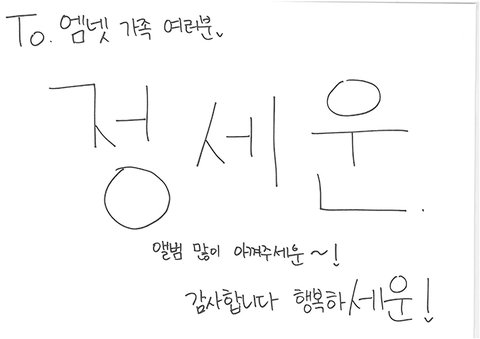 To. 엠넷 가족 여러분.
정세운.
앨범 많이 아껴주세운~!
감사합니다 행복하세운!